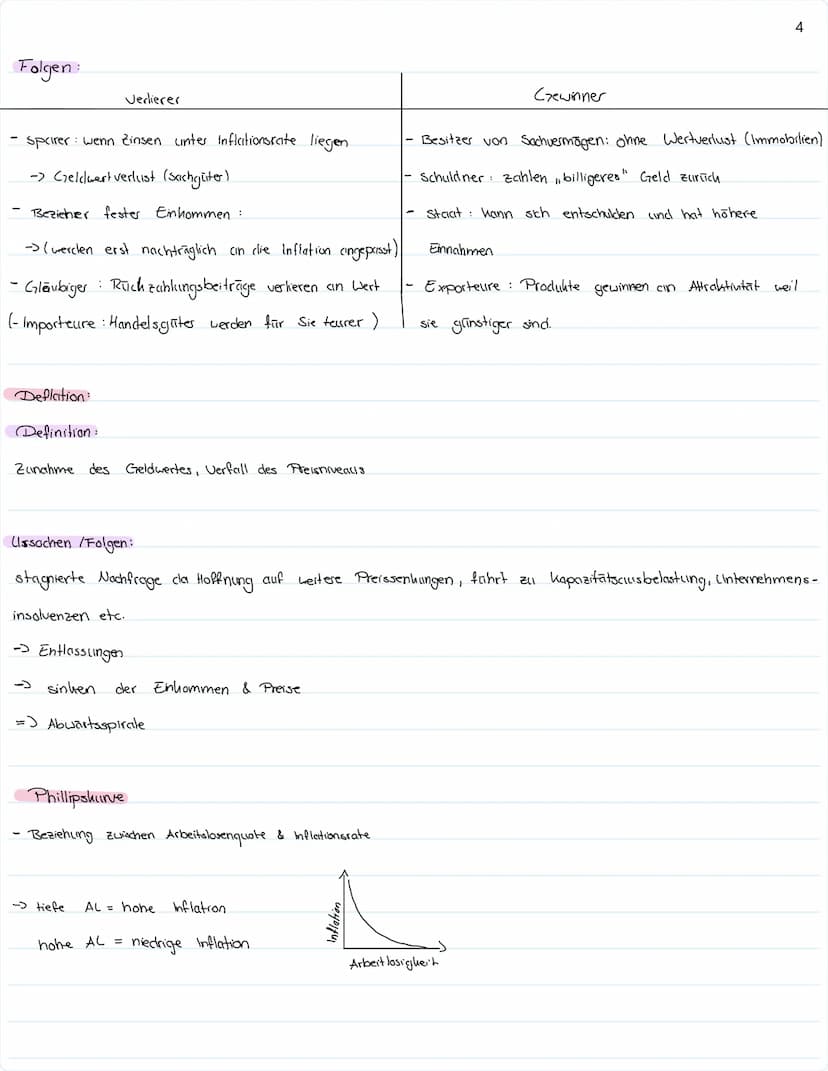 4
Folgen:
Verlierer
Gewinner
- Sparer: wenn Zinsen unter Inflationsrate liegen
-> Geldwertverlust (Sachgüter)
- Bezieher fester Einkommen :
-> (werden erst nachträglich an die Inflation angepasst)
- Gläubiger : Rückzahlungsbeiträge verlieren an Wert
(- Importeure : Handelsgüter werden für Sie teurer )
- Besitzer von Sachvermögen: ohne Wertverlust (Immobilien)
- Schuldner : zahlen „billigeres" Geld zurück
- Staat : kann sich entschulden und hat höhere
Einnahmen
- Exporteure : Produkte gewinnen an Attraktivität weil
sie günstiger sind.
Deflation:
Definition:
Zunahme des Geldwertes, Verfall des Preisniveaus
Ursachen /Folgen:
stagnierte Nachfrage da Hoffnung auf weitere Preissenkungen, führt zu Kapazitätsausbelastung, Unternehmens-
insolvenzen etc.
-> Entlassungen
-> sinken der Einkommen & Preise
=> Abwärtsspirale
Phillipskurve
- Beziehung zwischen Arbeitslosenquote & Inflationsrate
-> tiefe AL = hohe Inflation
hohe AL = niedrige Inflation
Inflation
Arbeitlosigkeit